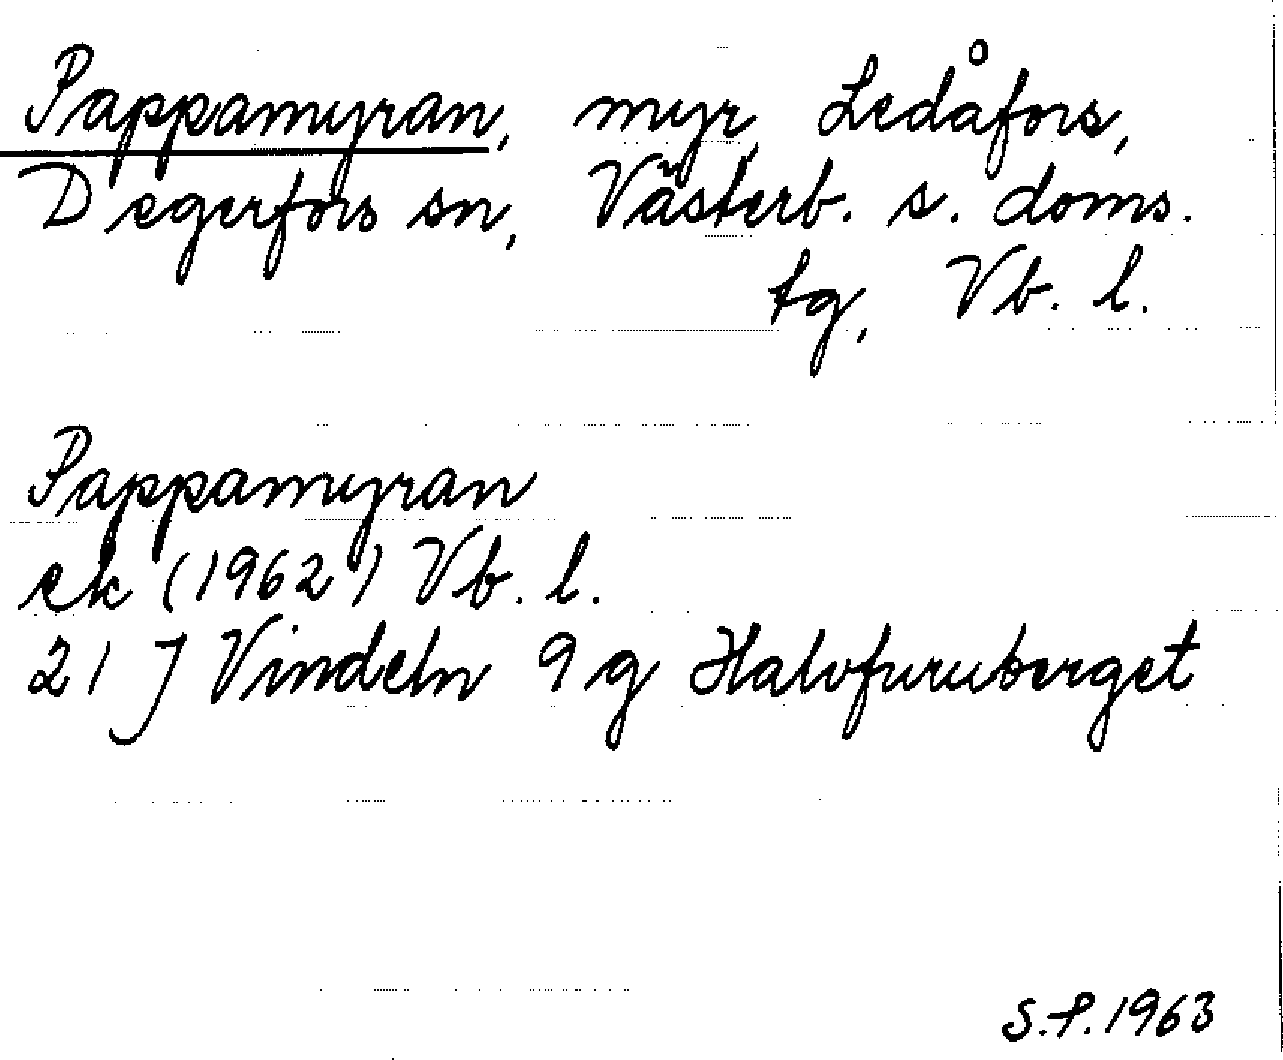 Pappamyran, myr, Ledåfors,
Degerfors sn, Västerb. s. doms.
tg, Vb. l.
Pappamyran
ek (1962) Vb. l.
21 J Vindeln 9 g Halvfuruberget
S.P. 1963